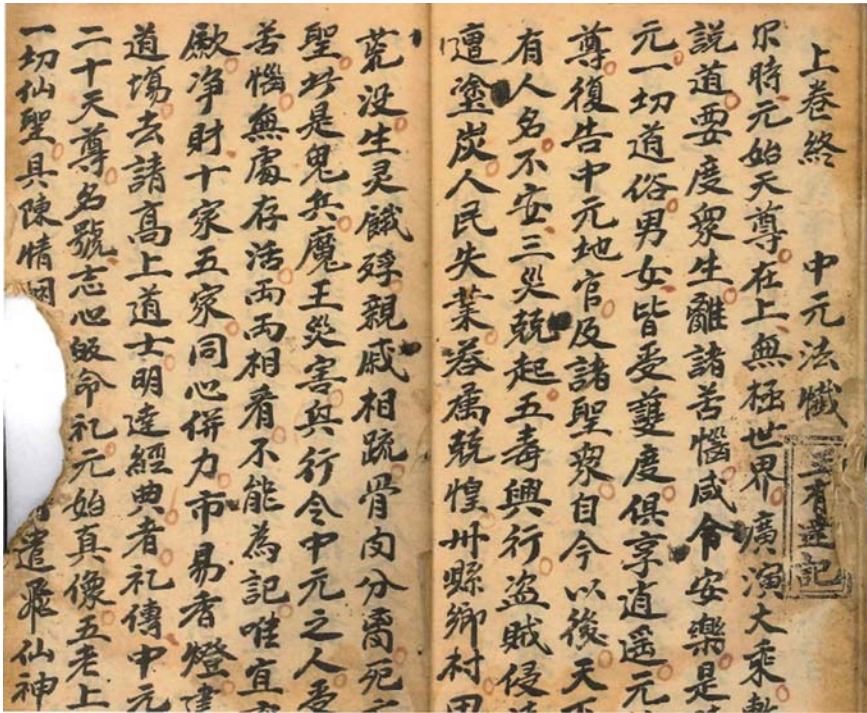 上卷終　中元法懺
王有達記
尔時元始天尊在上無極世界廣演大乘
說道要度衆生離諸苦惱咸令安樂是
元一切道俗男女皆受護度俱享逍遥元
尊復告中元地官及諸聖衆自今以後天
有人名不安三災兢起五毒興行盗賊侵
遭塗炭人民失業荅属兢惶州縣鄉村田
荒没生灵餓殍親戚相踈骨肉分离死
聖此是鬼兵魔王災害興行令中元之人受
苦惱無處存活両両相看不能為記唯宜
厥净財十家五家同心併力市易香燈
道塲去請高上道士明達經典者礼傳中元
二十天尊名號志心皈命礼元始真像五老上
一切仙聖具陳情 遣飛仙神